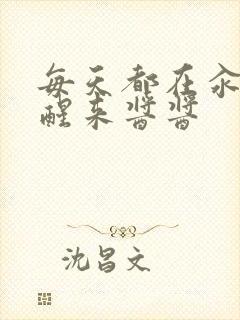 每天都在汆
醒来酱酱
沈昌文